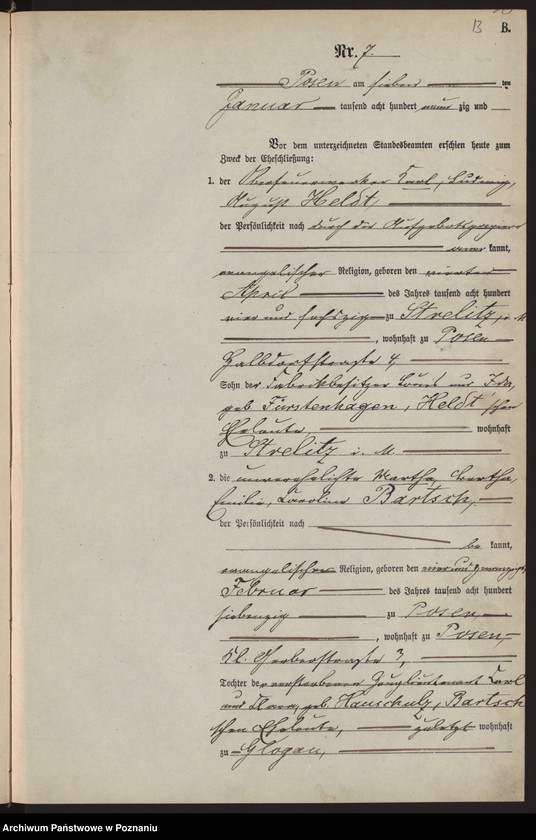 B B.
Nr. 7.
Posen am sieben ten
Januar tausend acht hundert neun zig und
Vor dem unterzeichneten Standesbeamten erschien heute zum
Zweck der Eheschließung:
1. der Oberfeuerwerker Karl, Ludwig,
August Heldt,
der Persönlichkeit nach durch die Aufgebotspapiere
aner kannt,
evangelischer Religion, geboren den vierten
April des Jahres tausend acht hundert
vier und sechszig zu Strelitz, i. M
, wohnhaft zu Posen
Halbdorfstraße 4,
Sohn der Fabrikbesitzer Louis und Ida,
geb. Fürstenhagen, Heldt'schen
Eheleute, wohnhaft
zu Strelitz i. M.
2. die unverehelichte Martha, Bertha,
Emilie, Caroline Bartsch,
der Persönlichkeit nach
be kannt,
evangelischer Religion, geboren den vier und zwanzigsten
Februar des Jahres tausend acht hundert
siebenzig zu Posen,
, wohnhaft zu Posen,
Kl. Gerberstraße 3,
Tochter der verstorbenen Zeuglieutenant Carl
und Klara, geb. Hauschulz, Bartsch
schen Eheleute, zuletzt wohnhaft
zu Glogau,
Archiwum Państwowe w Poznaniu